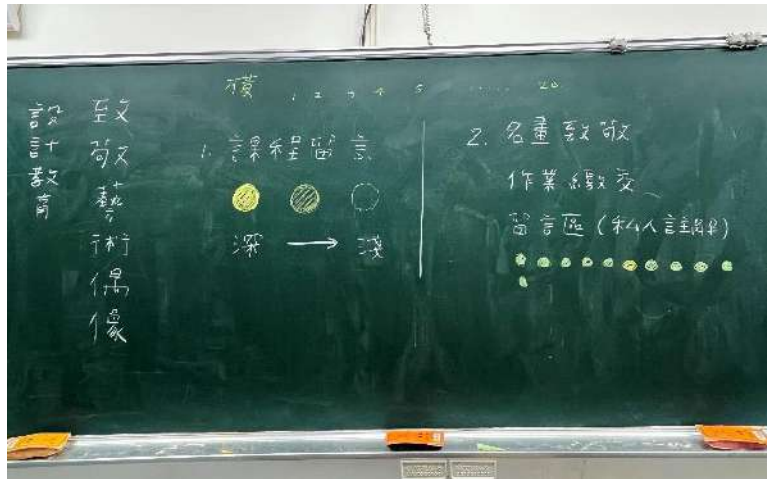 設計教育
致敬藝術偶像
橫 1 2 3 4 5 ...... 20
1. 課程留言
深 → 淺
2. 名畫致敬
作業繳交
留言區(私人註解)